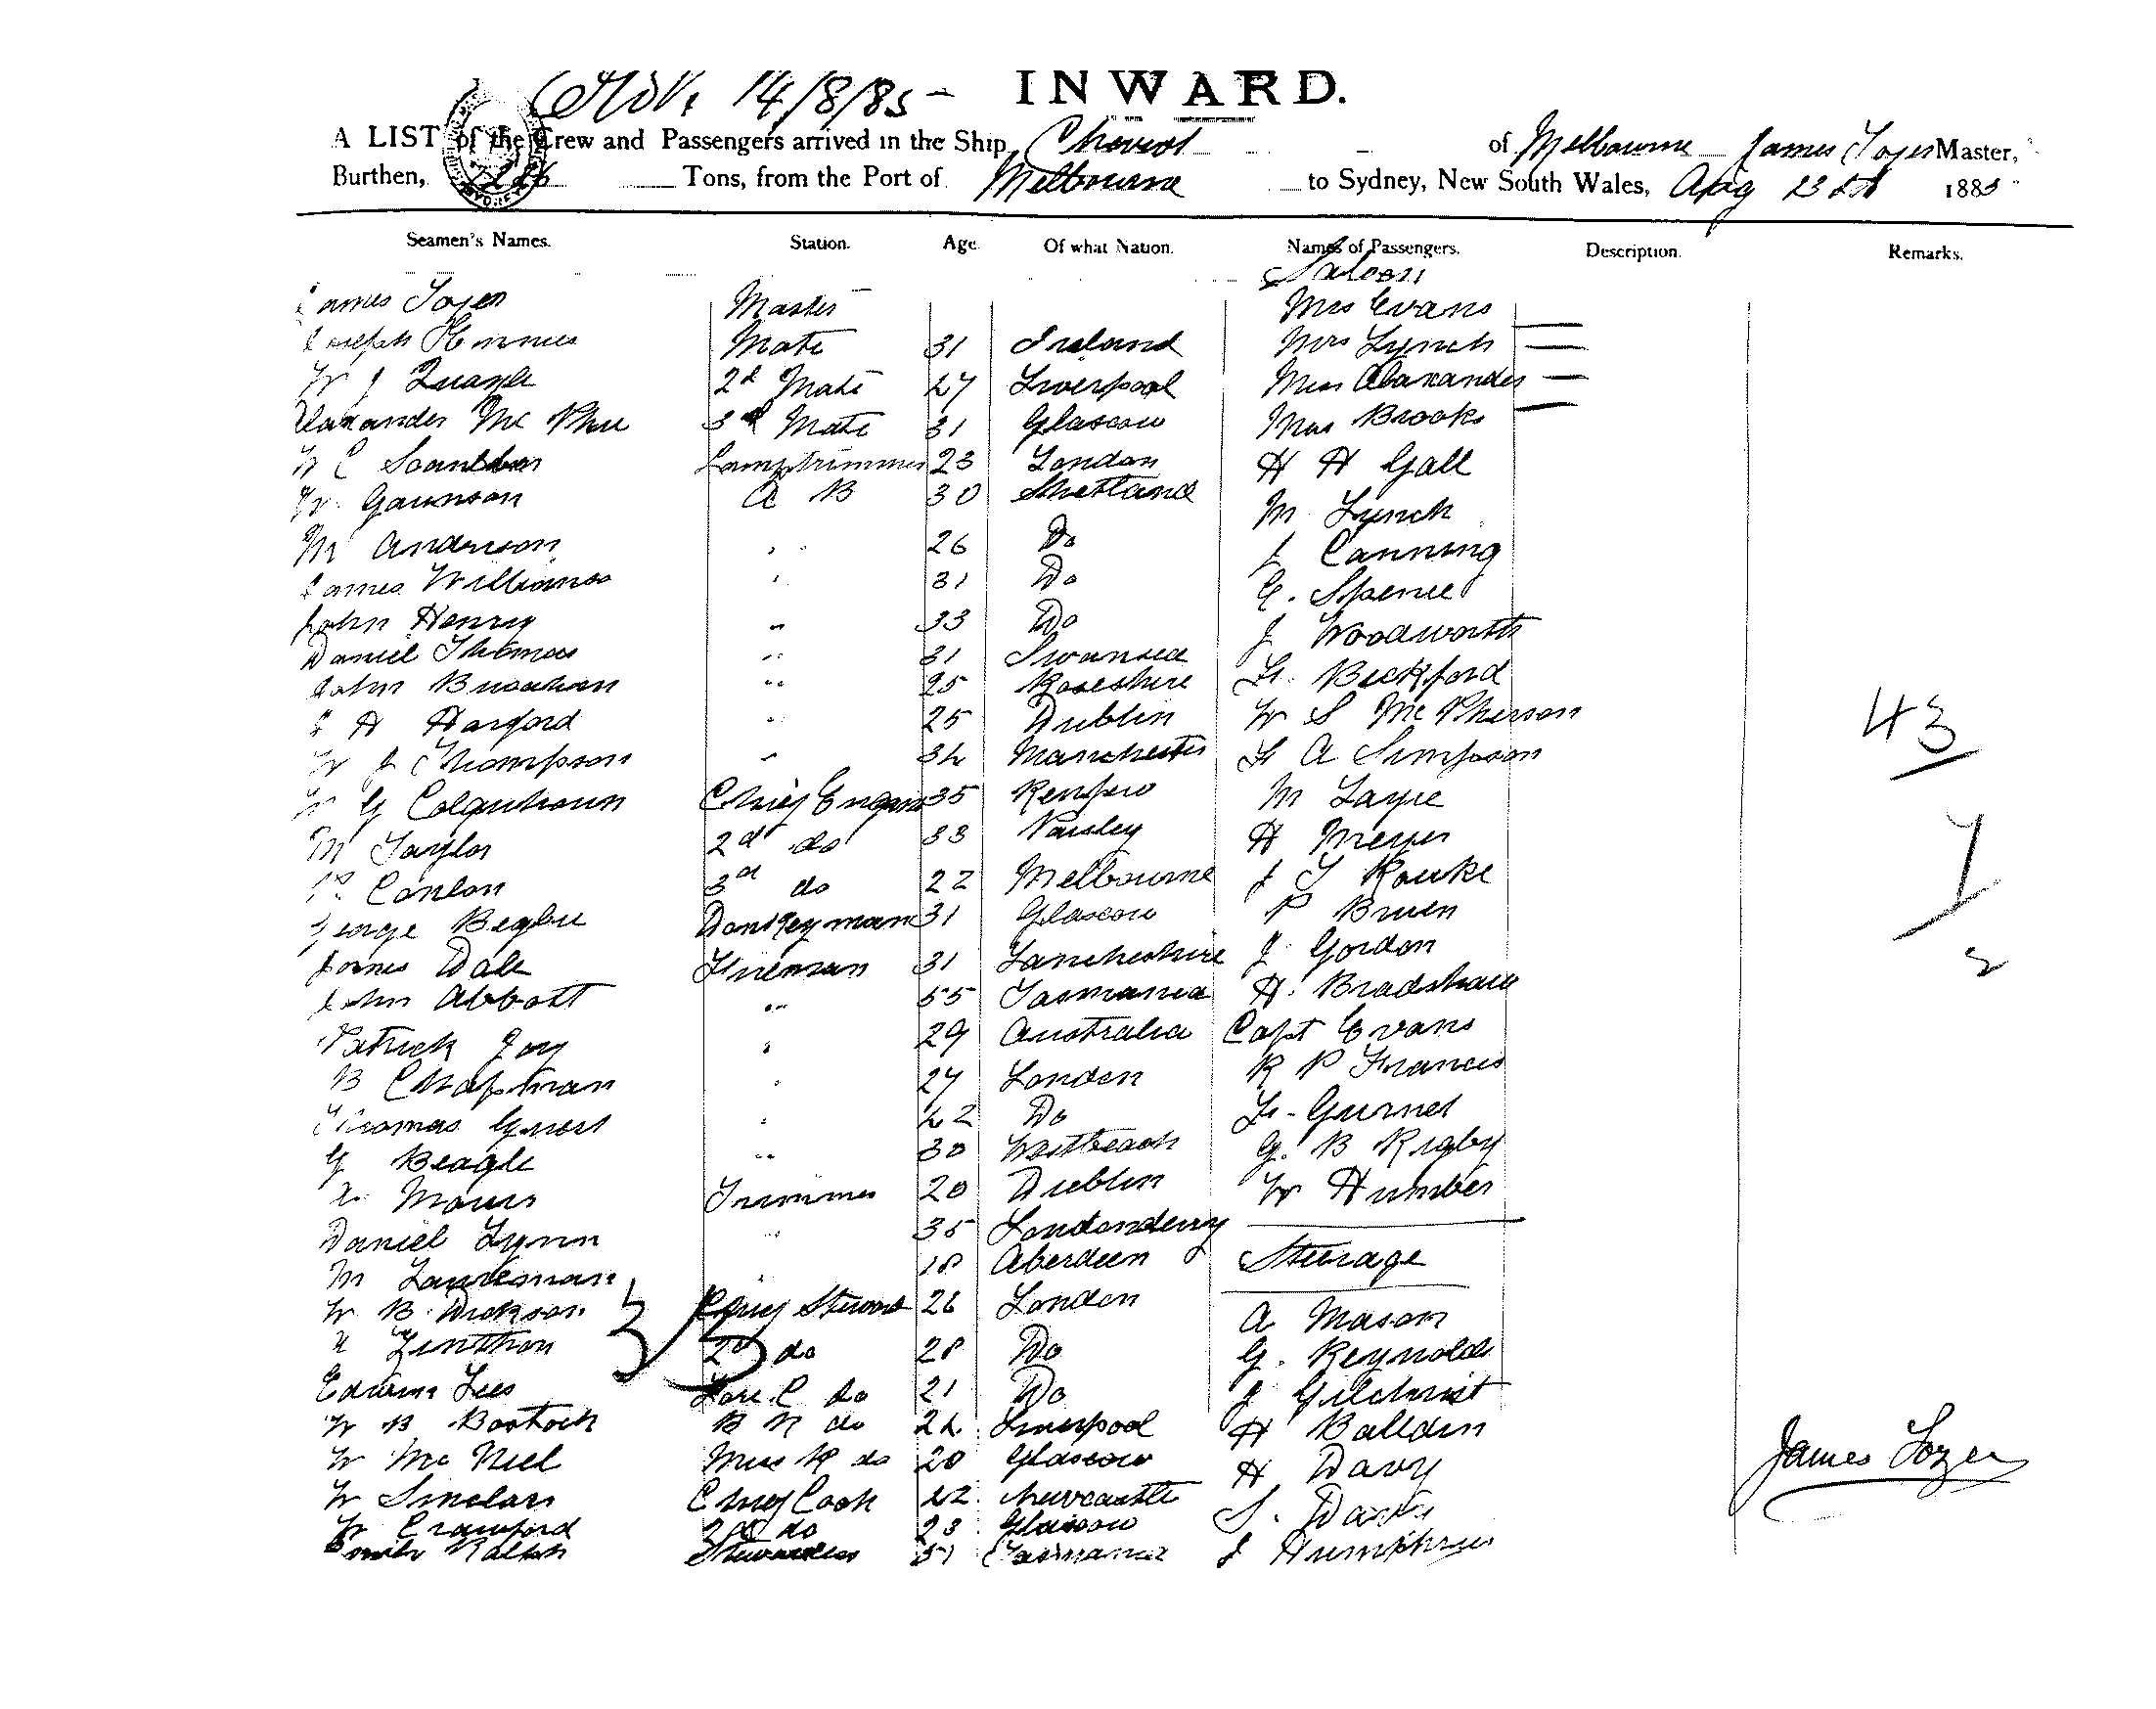 14/8/85 INWARD.
A LIST of the Crew and Passengers arrived in the Ship Cheviot of Melbourne James Tozer Master,
Burthen, Tons, from the Port of Melbourne to Sydney, New South Wales, Aug 1885
Seamen's Names. Station. Age Of what Nation. Names of Passengers. Description. Remarks.
Saloon
James Tozer Master Mrs Evans
Joseph Mate 31 Ireland Mrs Lynch
W J Quayle 2d Mate 27 Liverpool Miss Alaxander
Alaxander Mc Phee 3d Mate 31 Glascow Brooks
W C Lamptrimmer 23 London H H Gall
W. Gaunson A B 30 Shetland M Lynch
M Anderson 26 Do J Canning
James Williams 31 Do G. Spence
John Henry 33 Do J Woodworth
Daniel Thomas 31 Swansea Beckford
John 25 W S Mc Pherson
J H Harford 25 Dublin A Simpson
W J Thompson 34 Manchester M
W G Colquhoun Chief Engineer 35 Renfrew H Meyer
M Taylor 2d do 33 Paisley J T Rourke
Conlon 3d do 22 Melbourne P Bruen
George Begbie Donkeyman 31 Glascow J Gordon
James Dale Fireman 31 Lancheshire H. Bradshaw
John Abbott 55 Tasmania Capt Evans
Patrick Joy 29 Australia R P Francis
B Chapman 27 London
Thomas 42 Do G. B Rigby
G Beagle 30 W Humber
Trimmer 20 Dublin
Daniel Lynn 35 Londonderry Steerage
M 18 Aberdeen
W B Dickson Chief Steward 26 London A Mason
Linthon 2d do 28 Do G. Reynolds
Lees Fore C do 21 Do J Gilchrist
W B Bostock B R do 24 Liverpool H Ballden
W Mc Niel Mess R do 20 Glascow H Davy
W Sinclair Chief Cook 22 Newcastle S.
W Crawford 2d do 23 Glascow J Humphries
Ralph Stewardess 51 Tasmania
35
43
7
2
James Tozer